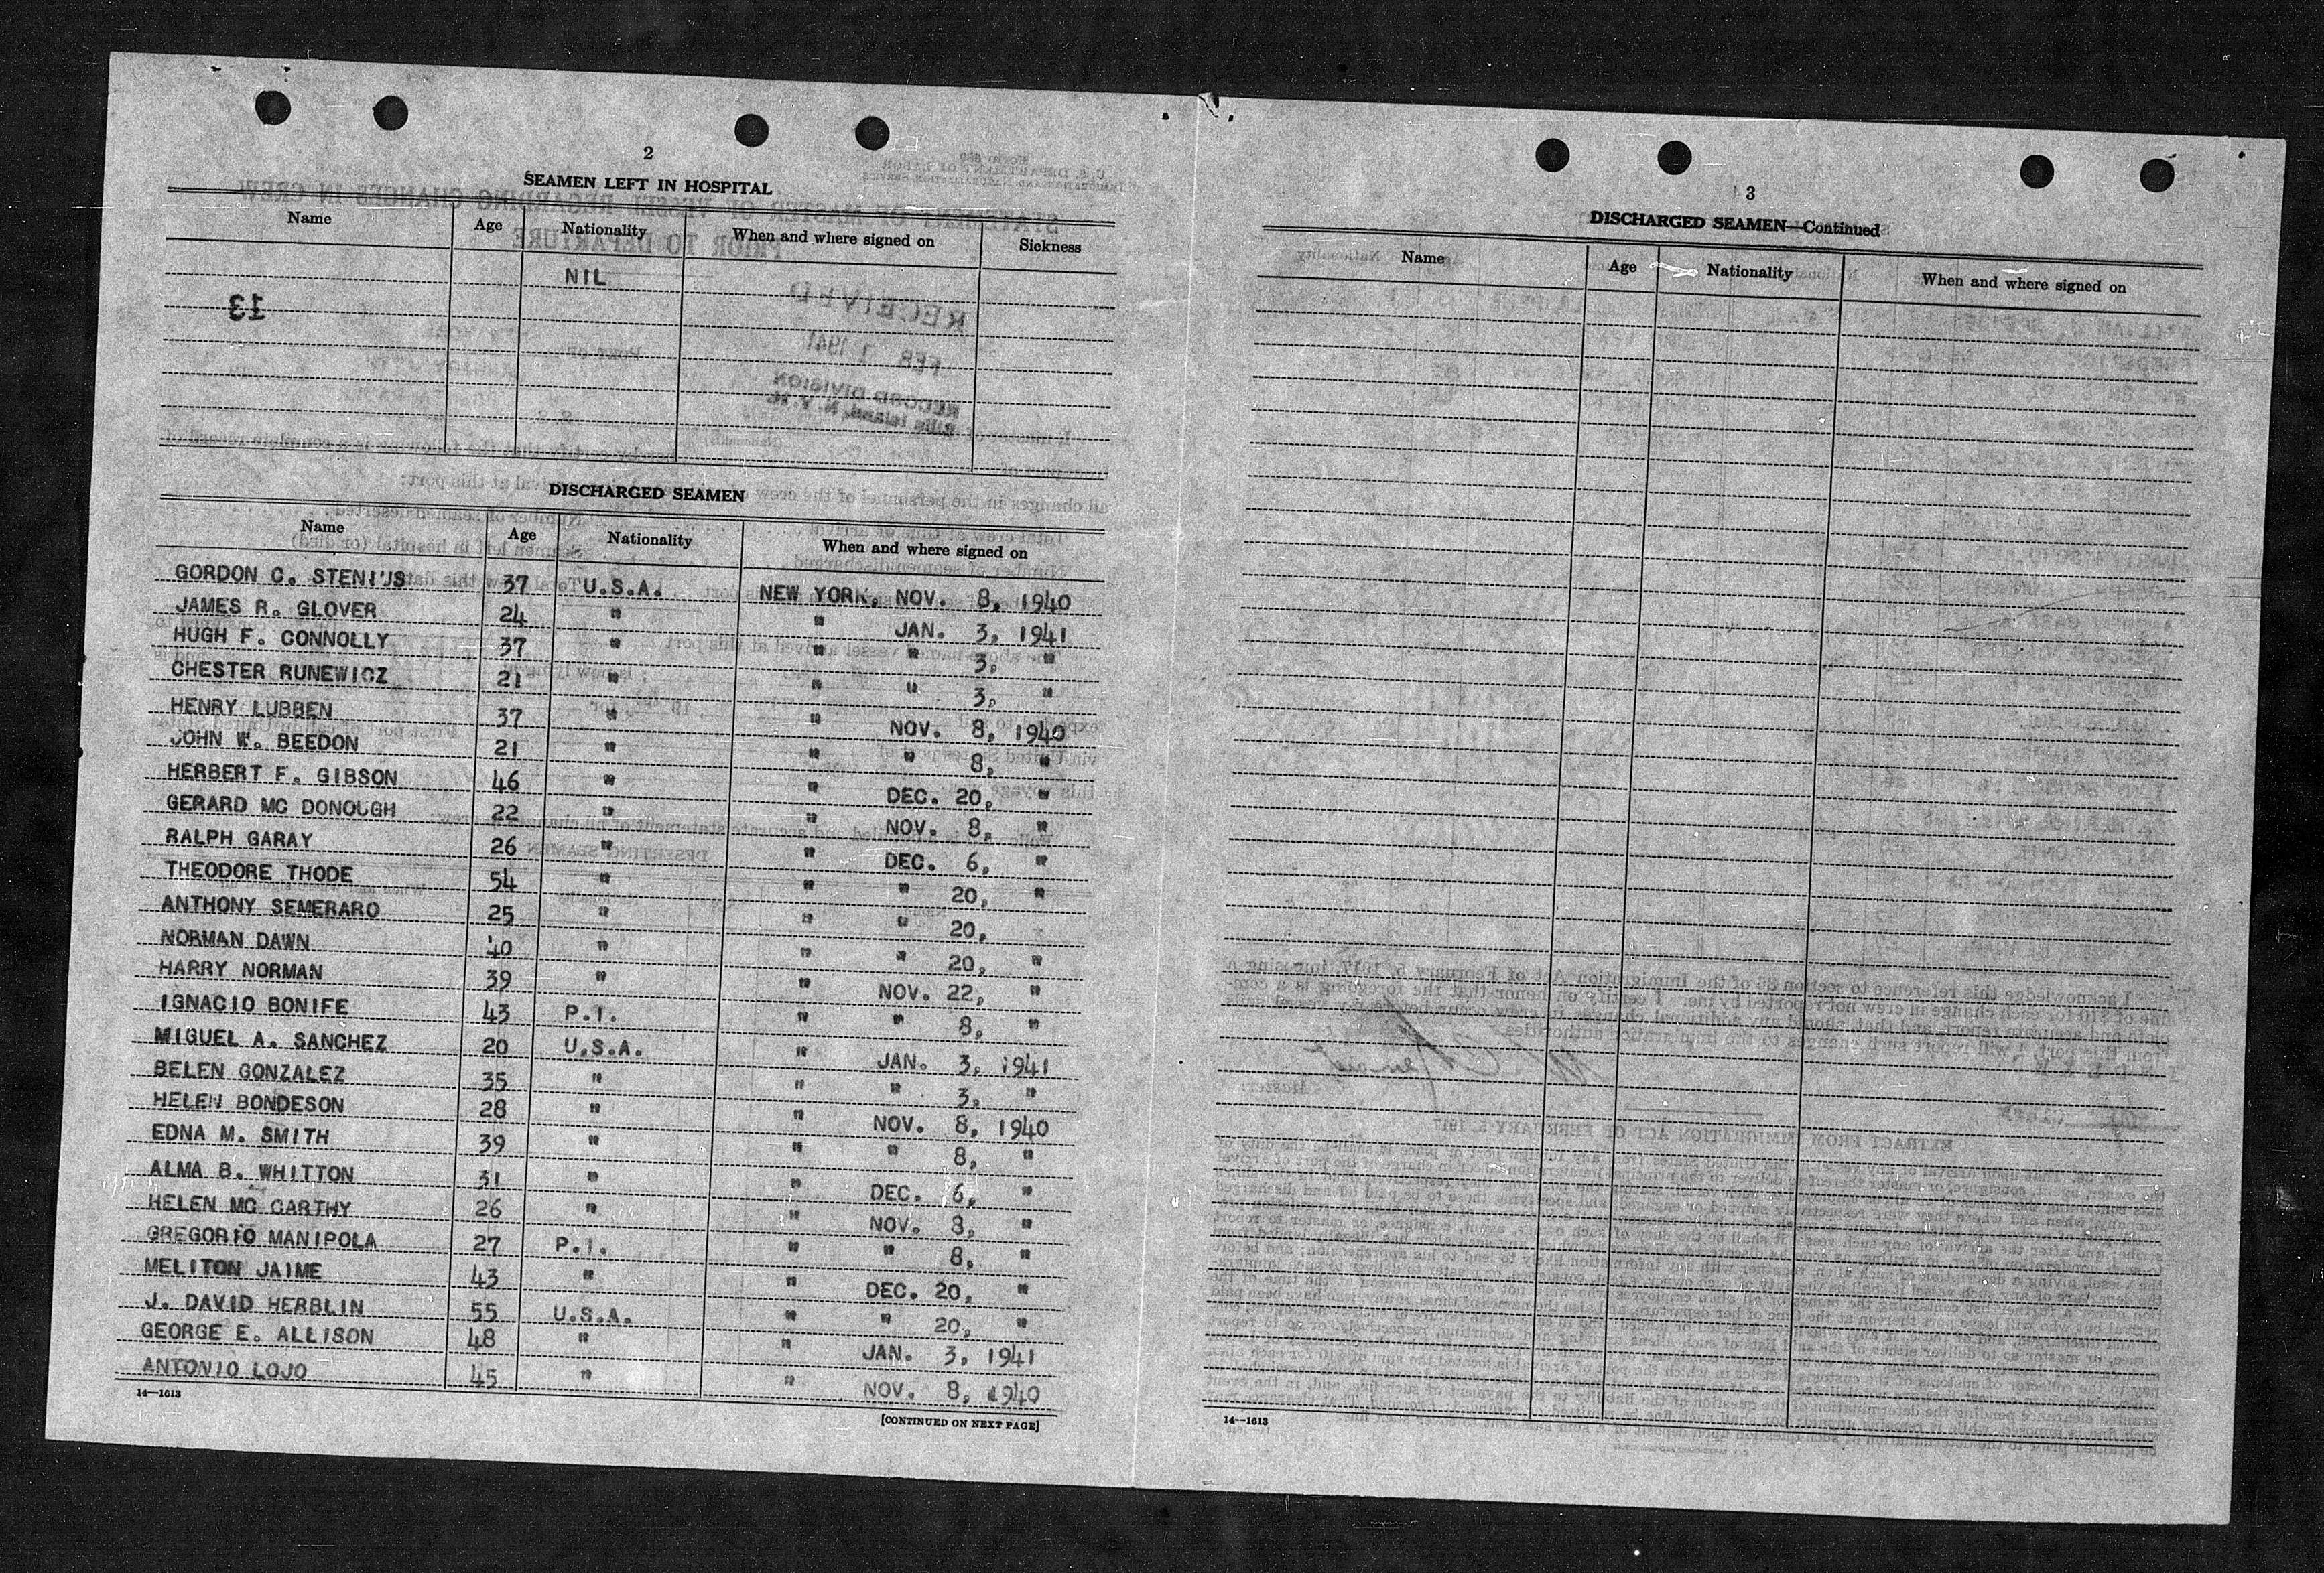 2
SEAMEN LEFT IN HOSPITAL
Name Age Nationality When and where signed on Sickness
NIL
13
DISCHARGED SEAMEN
Name Age Nationality When and where signed on
GORDON C. STENIUS 37 U.S.A. NEW YORK, NOV. 8, 1940
JAMES R. GLOVER 24 " " JAN. 3, 1941
HUGH F. CONNOLLY 37 " " " 3, "
CHESTER RUNEWICZ 21 " " " 3, "
HENRY LUBBEN 37 " " NOV. 8, 1940
JOHN W. BEEDON 21 " " " 8, "
HERBERT F. GIBSON 46 " " DEC. 20, "
GERARD MC DONOUGH 22 " " NOV. 8, "
RALPH GARAY 26 " " DEC. 6, "
THEODORE THODE 54 " " " 20, "
ANTHONY SEMERARO 25 " " " 20,
NORMAN DAWN 40 " " " 20, "
HARRY NORMAN 39 " " NOV. 22, "
IGNACIO BONIFE 43 P.I. " " 8, "
MIGUEL A. SANCHEZ 20 U.S.A. " JAN. 3, 1941
BELEN GONZALEZ 35 " " " 3, "
HELEN BONDESON 28 " " NOV. 8, 1940
EDNA M. SMITH 39 " " " 8, "
ALMA B. WHITTON 31 " " DEC. 6, "
HELEN MC CARTHY 26 " " NOV. 8, "
GREGORIO MANIPOLA 27 P.I. " " 8, "
MELITON JAIME 43 " " DEC. 20, "
J. DAVID HERBLIN 55 U.S.A. " " 20, "
GEORGE E. ALLISON 48 " " JAN. 3, 1941
ANTONIO LOJO 45 " " NOV. 8, 1940
14—1613
[CONTINUED ON NEXT PAGE]
3
DISCHARGED SEAMEN—Continued
Name Age Nationality When and where signed on
14—1613